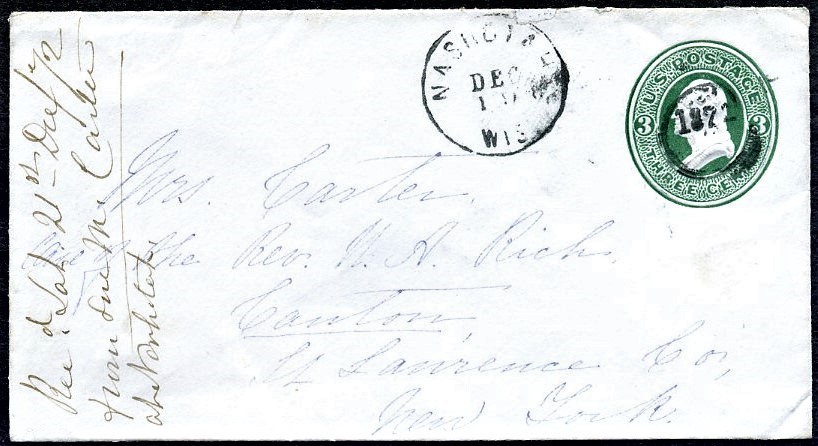 NASHOTAH
DEC
19
WIS
U.S. POSTAGE
3 3
THREE CENTS
187
Mrs. Carter.
Care of the Rev. W. A. Rich.
Canton,
St Lawrence Co;
New York.
Rec'd. Sat. 21st Dec / 72
from Carter
at